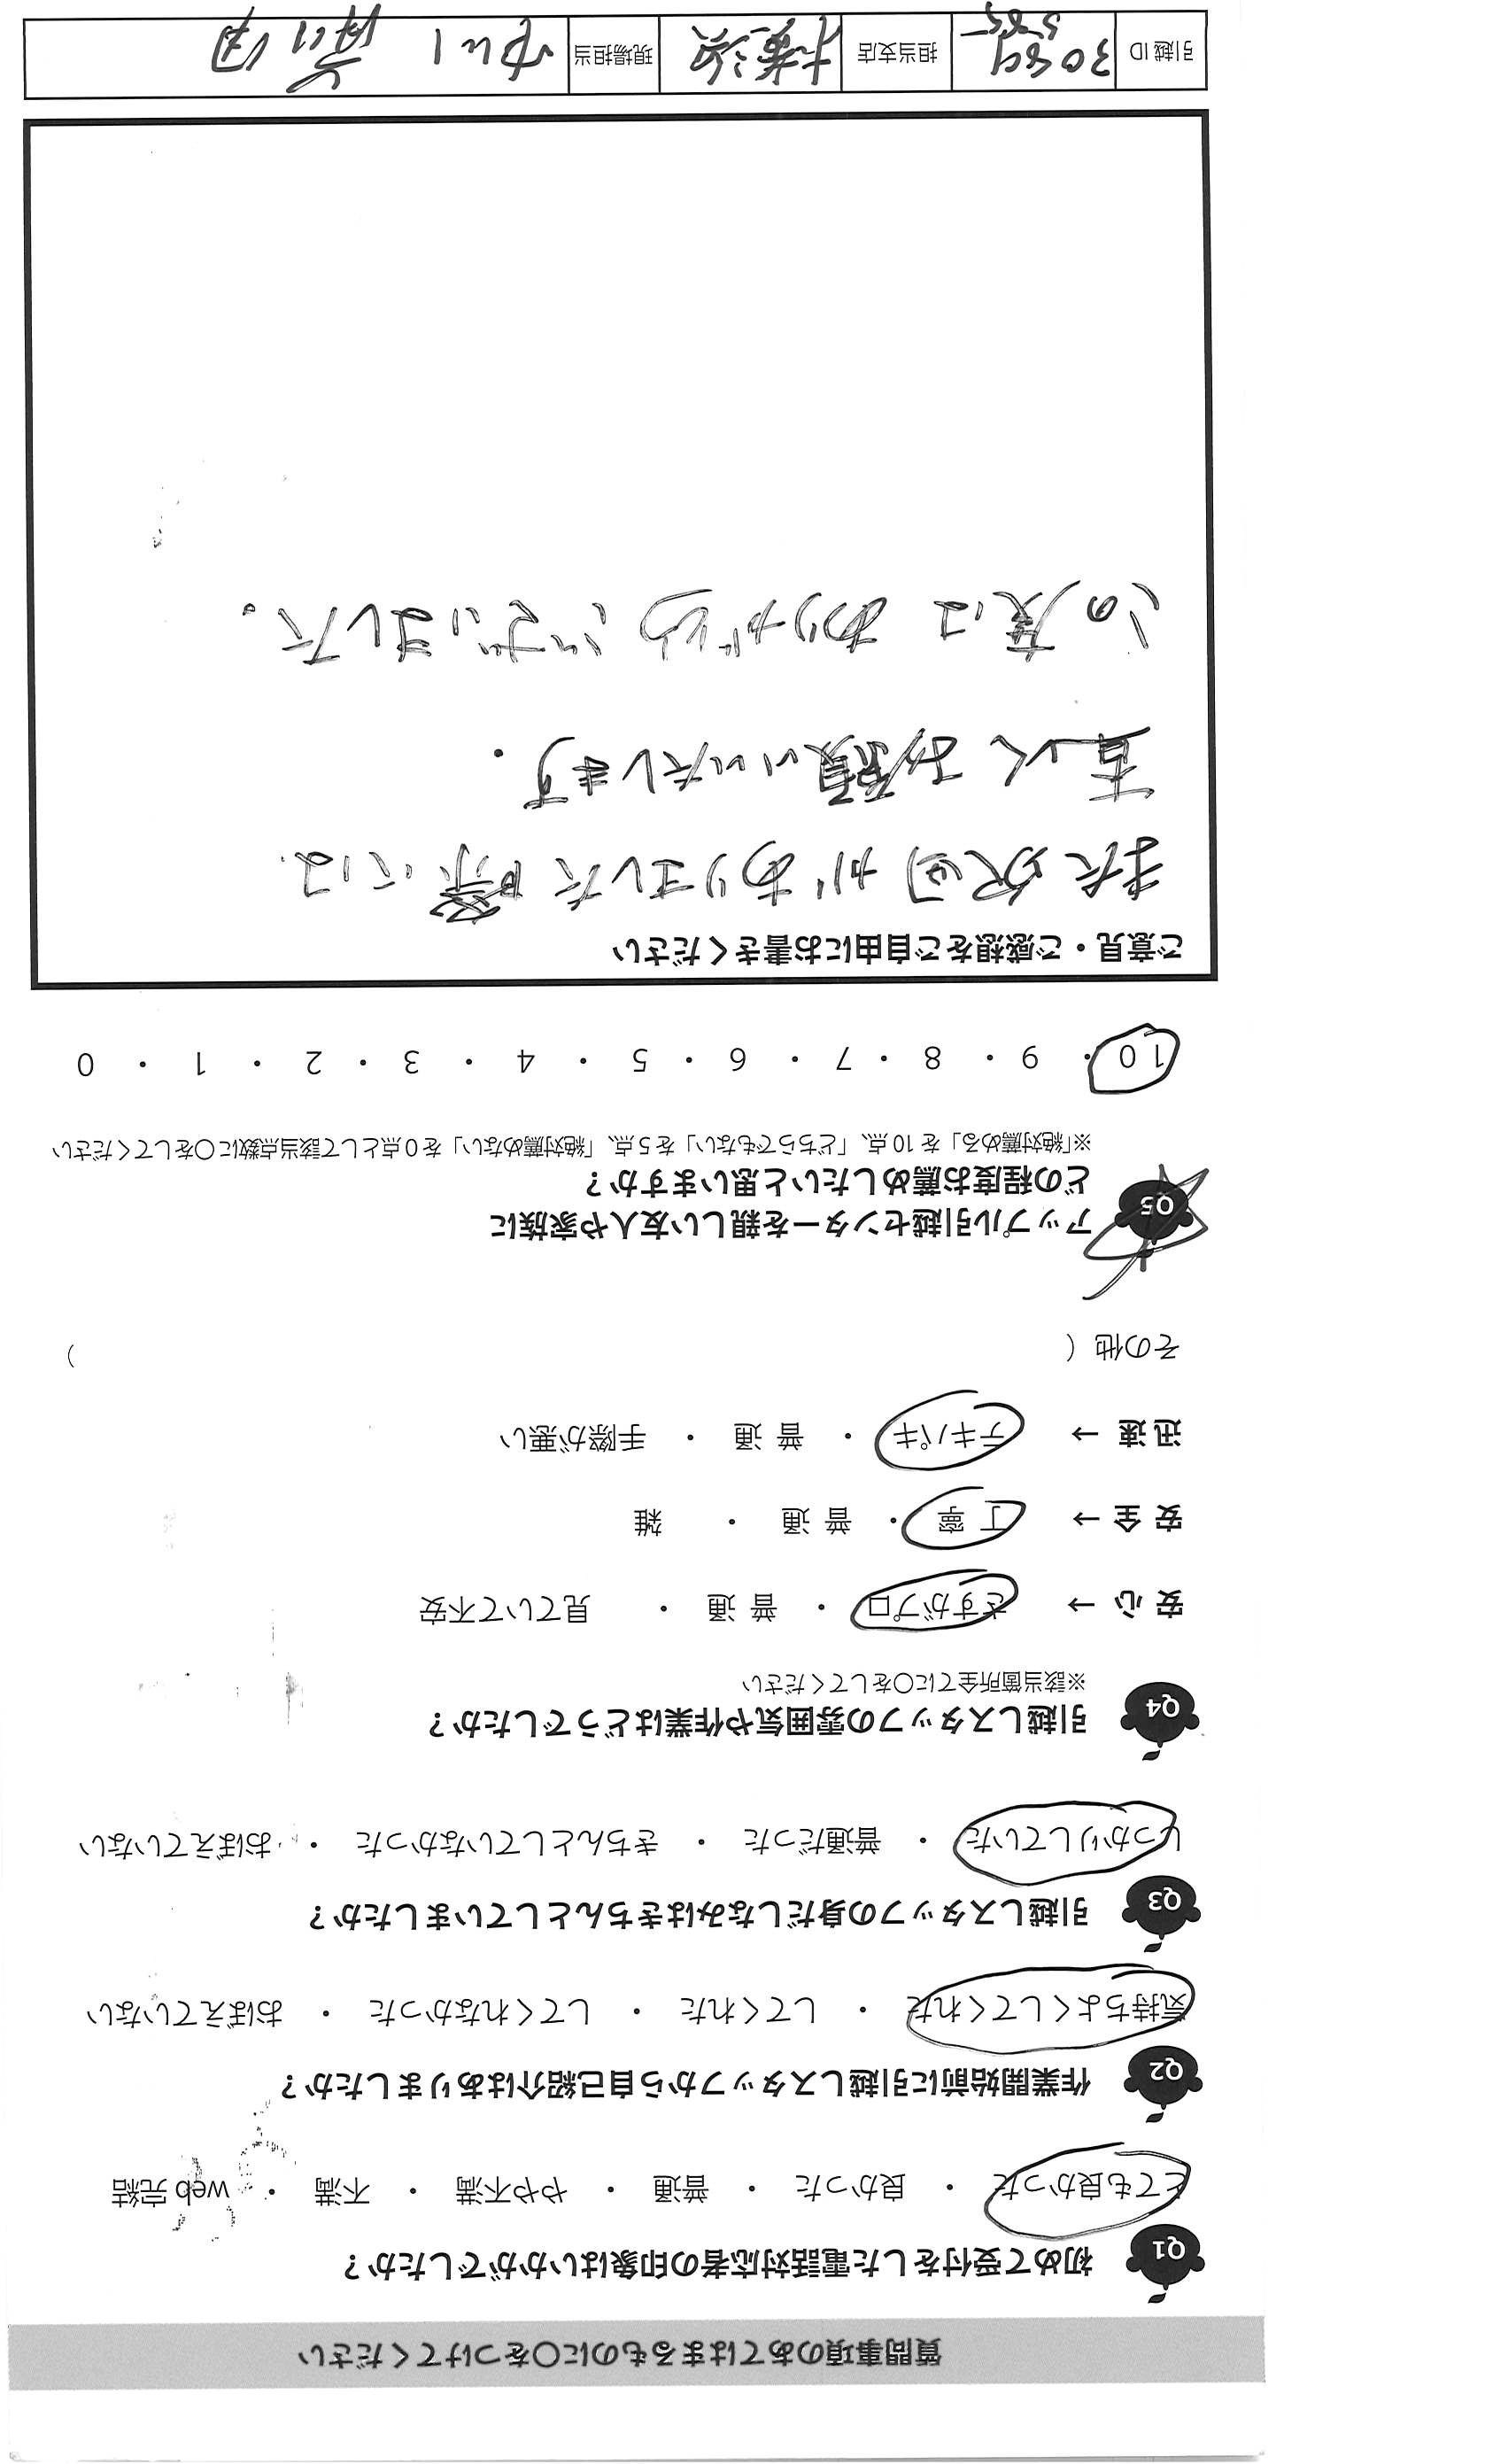 質問事項のあてはまるものに○をつけてください
Q1 初めて受付をした電話対応者の印象はいかがでしたか?
とても良かった ・ 良かった ・ 普通 ・ やや不満 ・ 不満 ・ web完結
Q2 作業開始前に引越しスタッフから自己紹介はありましたか?
気持ちよくしてくれた ・ してくれた ・ してくれなかった ・ おぼえていない
Q3 引越しスタッフの身だしなみはきちんとしていましたか?
しっかりしていた ・ 普通だった ・ きちんとしていなかった ・ おぼえていない
Q4 引越しスタッフの雰囲気や作業はどうでしたか?
※該当箇所全てに○をしてください
安心 → さすがプロ ・ 普通 ・ 見ていて不安
安全 → 丁寧 ・ 普通 ・ 雑
迅速 → テキパキ ・ 普通 ・ 手際が悪い
その他 ( )
Q5 アップル引越センターを親しい友人や家族に
どの程度お薦めしたいと思いますか?
※「絶対薦める」を10点、「どちらでもない」を5点、「絶対薦めない」を0点として該当点数に○をしてください
10 ・ 9 ・ 8 ・ 7 ・ 6 ・ 5 ・ 4 ・ 3 ・ 2 ・ 1 ・ 0
ご意見・ご感想をご自由にお書きください
また次回がありました際には
宜しくお願いいたします.
この度はありがとうございました。
引越ID 担当支店 現場担当